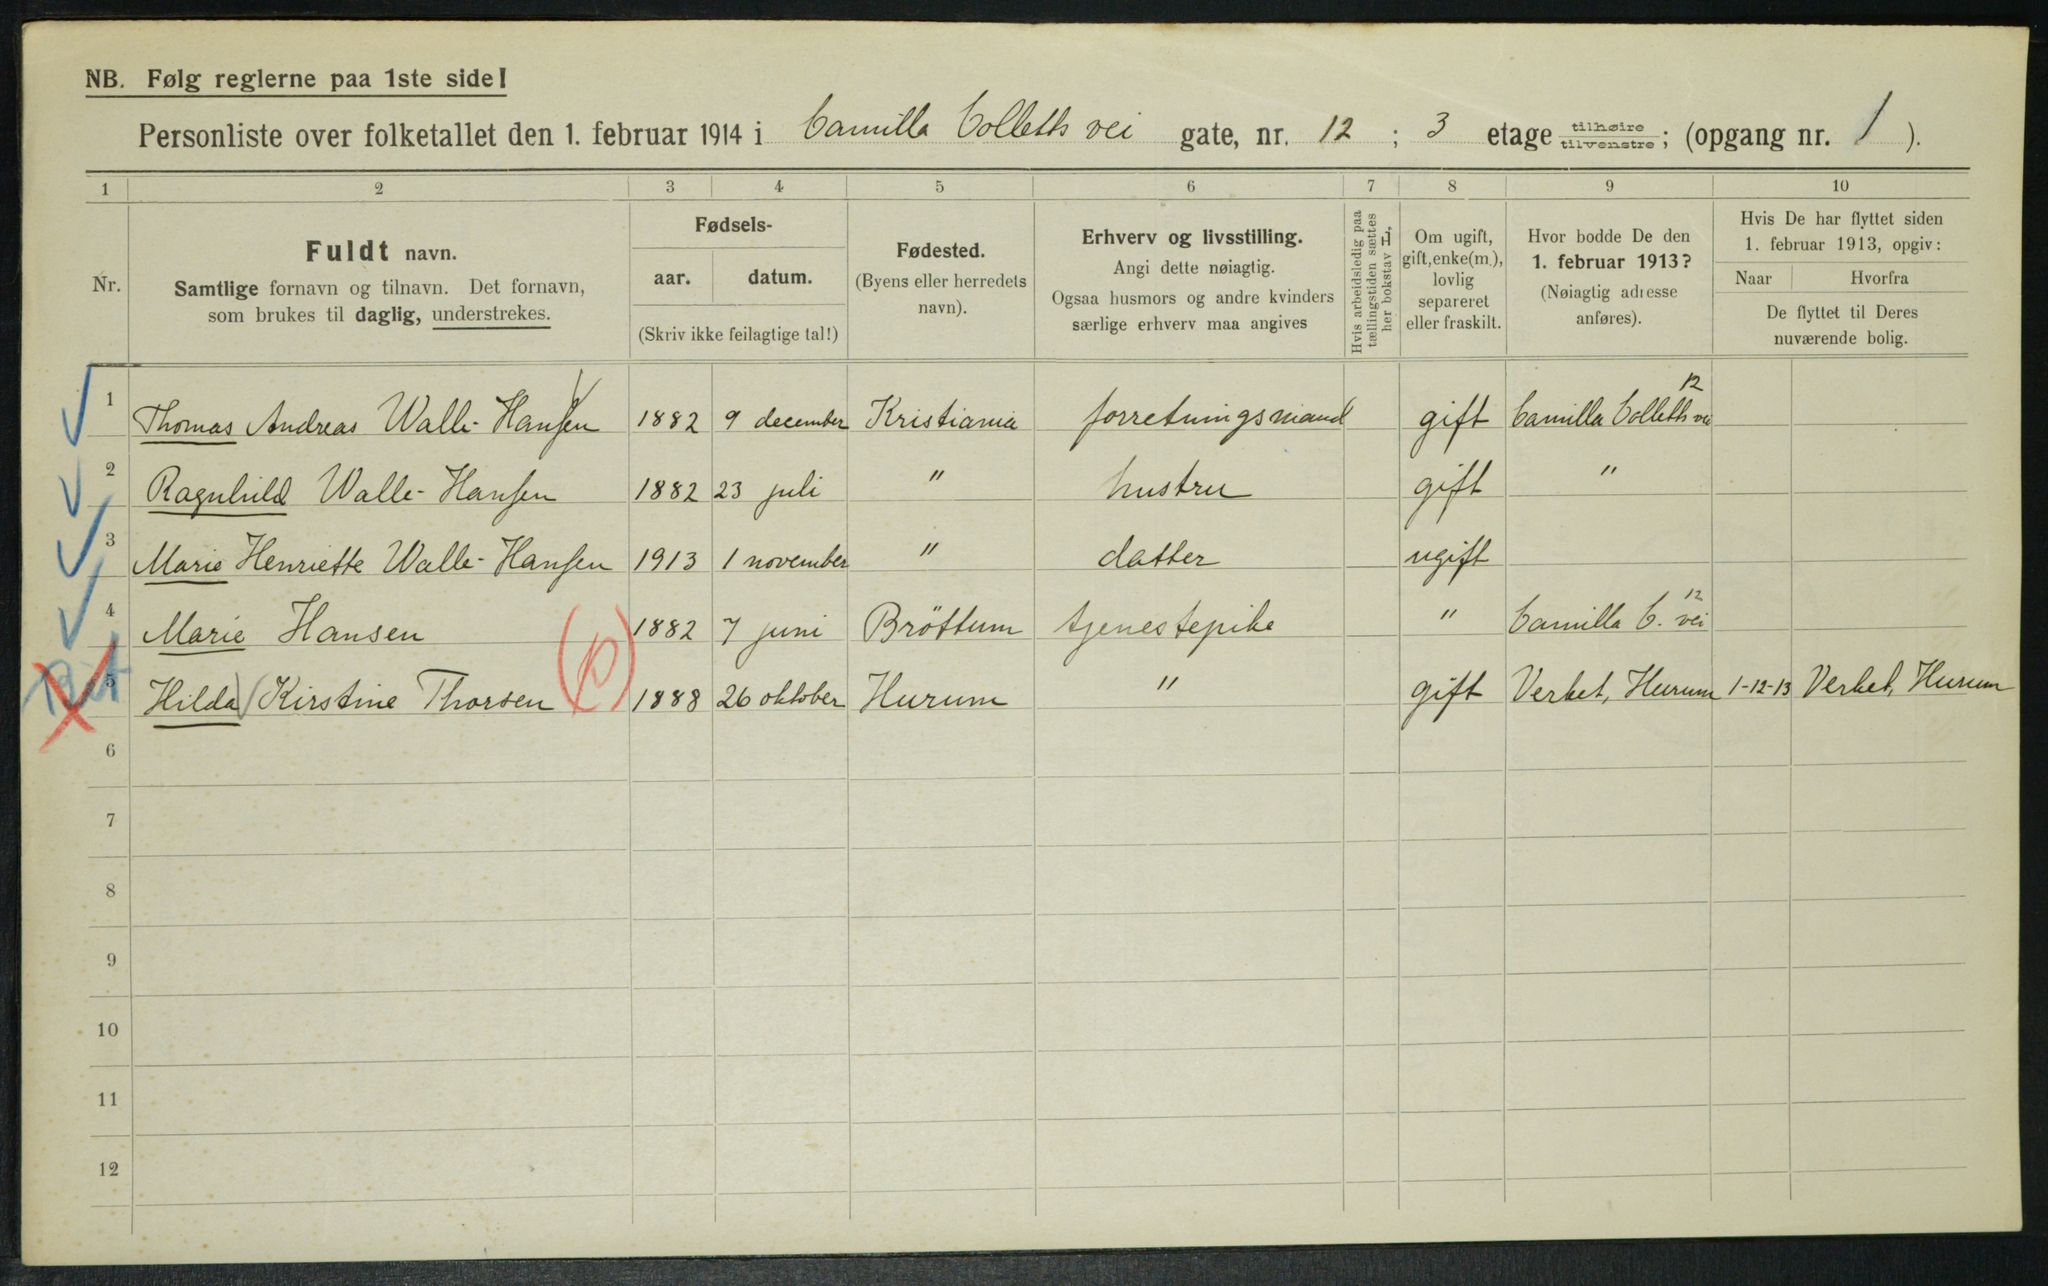 NB. Følg reglerne paa 1ste side!
Personliste over folketallet den 1. februar 1914 i Camilla Colletts vei gate, nr. 12 ; 3 etage tilhøire tilvenstre ; (opgang nr. 1 ).
1 2 3 4 5 6 7 8 9 10
Nr.
Fuldt navn.
Samtlige fornavn og tilnavn. Det fornavn,
som brukes til daglig, understrekes.
Fødsels-
aar. datum.
(Skriv ikke feilagtige tal!)
Fødested.
(Byens eller herredets
navn).
Erhverv og livsstilling.
Angi dette nøiagtig.
Ogsaa husmors og andre kvinders
særlige erhverv maa angives
Hvis arbeidsledig paa
tællingstiden sættes
her bokstav L.
Om ugift,
gift, enke(m.),
lovlig
separeret
eller fraskilt.
Hvor bodde De den
1. februar 1913?
(Nøiagtig adresse
anføres).
Hvis De har flyttet siden
1. februar 1913, opgiv:
Naar Hvorfra
De flyttet til Deres
nuværende bolig.
1 Thomas Andreas Walle-Hansen 1882 9 december Kristiania forretningsmand gift Camilla Colletts vei 12
2 Ragnhild Walle-Hansen 1882 23 juli " hustru gift "
3 Marie Henriette Walle-Hansen 1913 1 november " datter ugift
4 Marie Hansen 1882 7 juni Bröttum tjenestepike " Camilla C. vei 12
5 Hilda Kirstine Thorsen (p) 1888 26 oktober Hurum " gift Verket, Hurum 1-12-13 Verket, Hurum
6
7
8
9
10
11
12